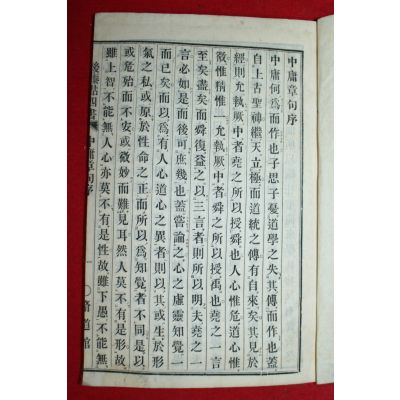 中庸章句序
中庸何爲而作也子思子憂道學之失其傳而作也蓋
自上古聖神繼天立極而道統之傳有自來矣其見於
經則允執厥中者堯之所以授舜也人心惟危道心惟
微惟精惟一允執厥中者舜之所以授禹也堯之一言
至矣盡矣而舜復益之以三言者則所以明夫堯之一
言必如是而後可庶幾也蓋嘗論之心之虛靈知覺一
而已矣而以爲有人心道心之異者則以其或生於形
氣之私或原於性命之正而所以爲知覺者不同是以
或危殆而不安或微妙而難見耳然人莫不有是形故
雖上智不能無人心亦莫不有是性故雖下愚不能無
後藤點四書 中庸章句序 一